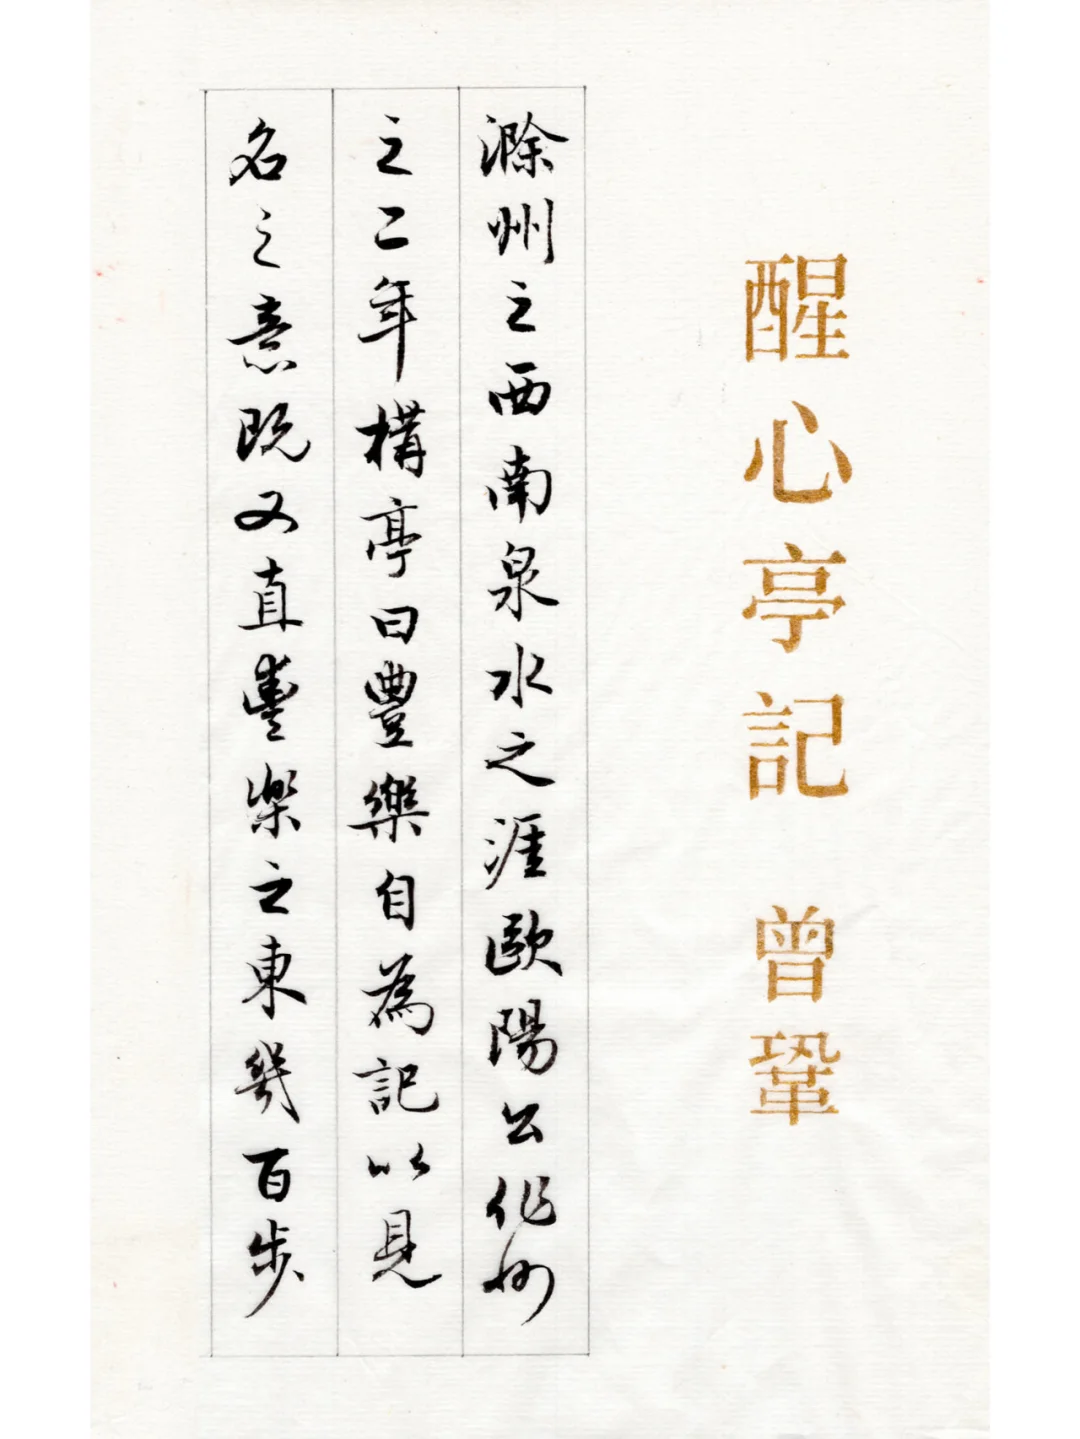 醒心亭記 曾鞏
滁州之西南泉水之涯歐陽公作州
之二年構亭曰豐樂自為記以見
名之意既又直豐樂之東幾百步